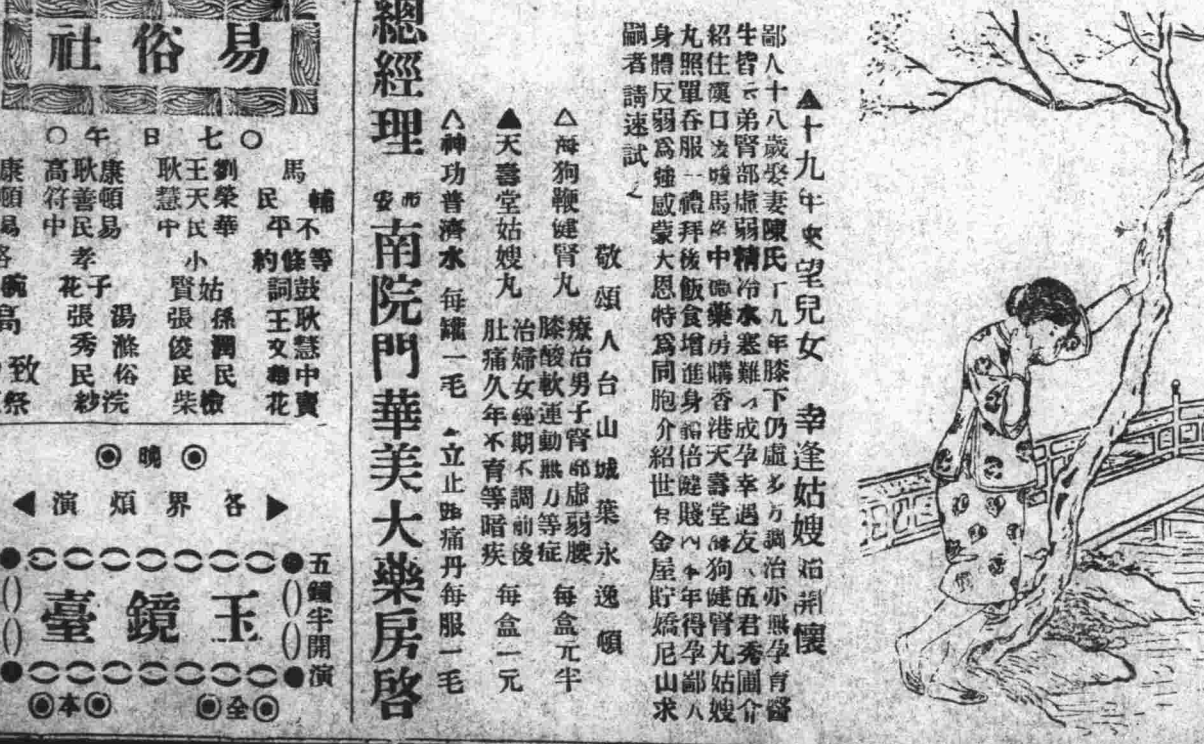 ▲十九年來望兒女　幸逢姑嫂始開懷
鄙人十八歲娶妻陳氏丁九年膝下仍虛多方調治亦無孕育醫
生皆云弟腎部虛弱精冷水寒難以成孕幸遇友人伍君秀圃介
紹往漢口 馬 中 藥房購香港天壽堂海狗健腎丸姑嫂
丸照單吞服一禮拜後飯食增進身體倍健賤內本年得孕鄙人
身體反弱爲強感蒙大恩特爲同胞介紹世有金屋貯嬌尼山求
嗣者請速試之
敬頌人台山城葉永逸頓
△海狗鞭健腎丸
療治男子腎部虛弱腰
膝酸軟運動無力等症
每盒元半
▲天壽堂姑嫂丸
治婦女經期不調前後
肚痛久年不育等暗疾
每盒一元
△神功普濟水 每罐一毛 ▲立止 痛丹每服一毛
總經理 西安 南院門華美大藥房啓
易俗社
○七日午○
馬輔
民平不
約條等
詞鼓
王耿
文慧
中
花賣
劉榮華
王天民
耿慧中
小姑賢
孫潤民
張俊民
檢柴
康頓易
耿善民
高符中
孝子花
湯滌俗
張秀民
浣紗
康頓易
高
致祭
◉晚◉
◀各界煩演▶
五鐘半開演
玉鏡臺
◉全◉　◉本◉